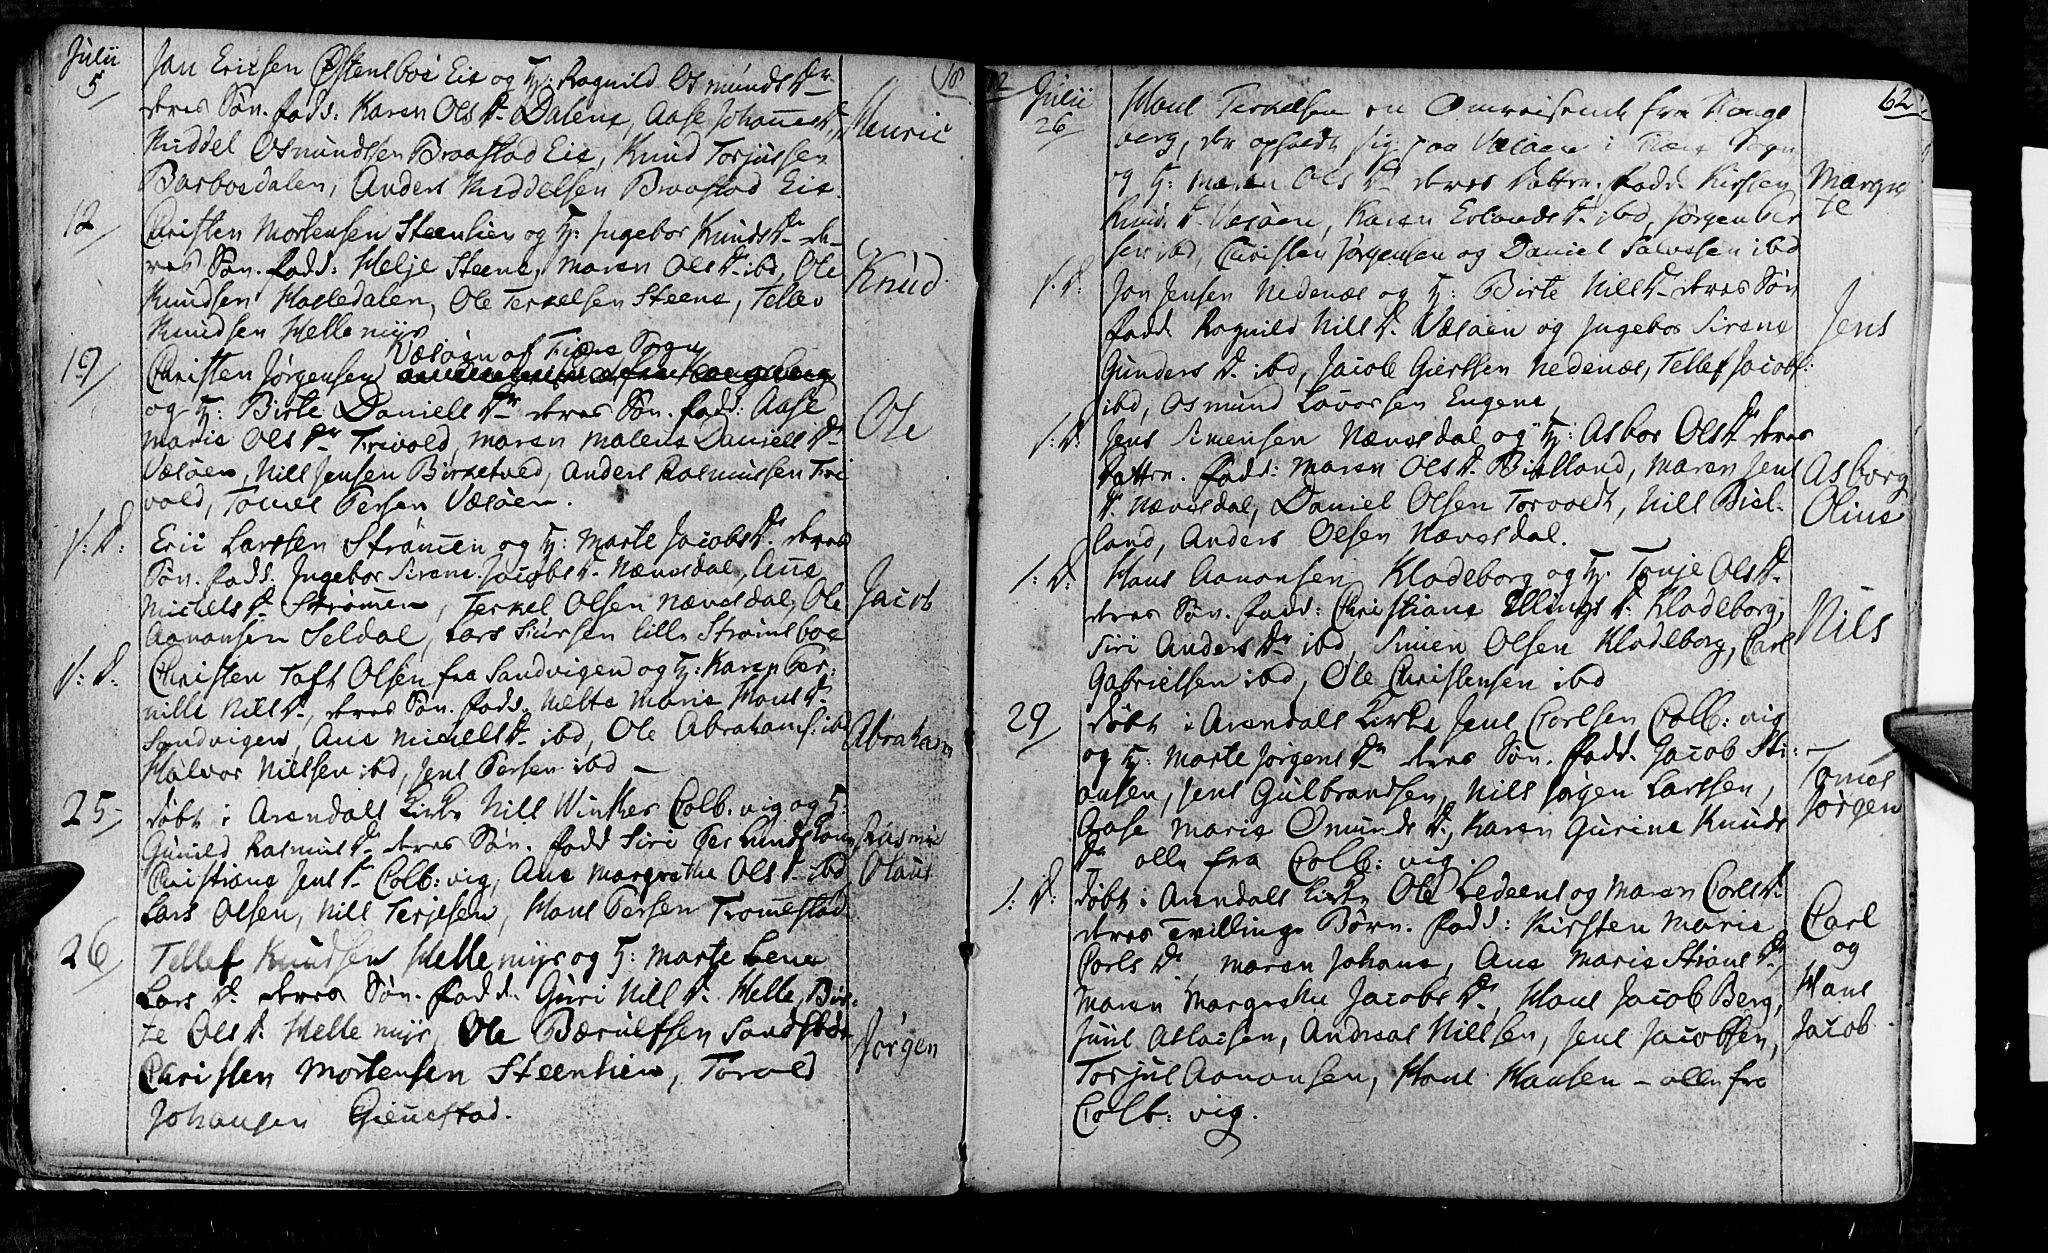 Julii
5
Jan Ericsen Østensboe Eie og H: Ragnild Osmunds Dr
deres Søn. fadd: Karen Ols Dr Dalene, Aase Johannes Dr,
Kiddel Osmundssen Braastad Eie, Knud Torjussen
Barboedalen, Anders Kiddelsen Braastad Eie.
Henric
18
12
Christen Mortensen Steenlien og H: Ingebor Knuds Dr de-
res Søn. fadd: Helje Steene, Maren Ols Dr ibd, Ole
Knudsen Hasledalen, Ole Terkelsen Steene, Tellev
Knudsen Hellemyr
Knud
19
Væsøen af Tiære Sogn
Christen Jørgensen
og H: Birte Daniels Dr deres Søn. fadd: Aase
Marie Ols Dr Trivold, Maren Malene Daniels Dr
Væsøen, Nills Jensen Birketved, Anders Rasmussen Tri
vold, Tomes Persen Væsøen.
Ole
S: D:
Eric Larssen Strømen og H: Marte Jacobs Dr deres
Søn. fadd: Ingebor Sirene Jacobs Dr Nævesdal, Ane
Michells Dr Strømen, Terkel Olsen Nævesdal, Ole
Aanonsen Seldal, Lars Siursen lille Strømsboe
Jacob
S: D:
Christen Toft Olsen fra Sandvigen og H: Karen Per-
nille Nills Dr, deres Søn. fadd: Mette Marie Hans Dr
Sandvigen, Ane Michells Dr ibd, Ole Abrahams: ibd
Halvor Nilssen ibd, Jens Persen ibd
Abraham
25
døbt i Arendals Kirke Nills Winther Colb: vig og H:
Gunild Rasmus Dr deres Søn. fadd Siri Per
Christiane Jens Dr Colb: vig, Ane Margrethe Ols Dr ibd,
Lars Olsen, Nills Terjesen, Hans Persen Tromestad
Olaus
26
Tellef Knudsen Hellemyr og H: Marte Lene
Lars Dr deres Søn. fadd: Guri Nills Dr Helle, Bir-
te Ols Dr Hellemyr, Ole Bærulfsen Sandsbør
Christen Mortensen Steenlien, Torold
Johansen Gienestad.
Jørgen
62
Julii
26
Hans Terkelsen en Omreisende fra Kongs
berg, der opholdt sig paa Væsøen i Tiære Sogn
og H: Maren Ols Dr deres Datter. fadd: Kirsten
Knuds Dr Væsøen, Karen Evlands Dr ibd, Jørgen Per
sen ibd, Christen Jørgensen og Daniel Salvesen ibd
Margre
te
S: D:
Jon Jensen Nedenæs og H: Birte Nills Dr deres Søn
fadd: Ragnild Nills Dr Væsøen og Ingebor Sirene
Gunders Dr ibd, Jacob Giertsen Nedenæs, Tellef Jacobs:
ibd, Osmund Lavorsen Engene,
Jens
S: D:
Jens Simensen Nævesdal og H: Asbor Ols Dr deres
Datter. fadd: Maren Ols Dr Bielland, Maren Jens
Dr Nævesdal, Daniel Olsen Torvoldt, Nills Biel-
land, Anders Olsen Nævesdal.
Asborg
Oline
S: D:
Hans Aanonsen Kladeborg og H: Tonje Ols Dr
deres Søn. fadd: Christiane Ellings Dr Kladeborg,
Siri Anders Dr ibd, Simen Olsen Kladeborg, Carl
Gabrielsen ibd, Ole Christensen ibd
Nils
29
døbt i Arendals Kirke Jens Carlsen Colb: vig
og H: Marte Jørgens Dr deres Søn. fadd: Jacob Sti-
ansen, Jens Gulbrandsen, Nils Jørgen Larssen,
Aase Marie Omunds Dr, Karen Gurine Knuds
Dr alle fra Colb: vig.
Tomes
Jørgen
S: D:
døbt i Arendals Kirke Ole Ledeens og Maren Carls Dr
deres Tvillinge Børn. fadd: Kirsten Marie
Carls Dr, Maren Johans, Ane Marie Stians Dr,
Maren Margrethe Jacobs Dr, Hans Jacob Berg,
Juul Aslacsen, Andreas Nillsen, Jens Jacobsen,
Torjul Aanonsen, Hans Hansen – alle fra
Colb: vig.
Carl
og
Hans
Jacob